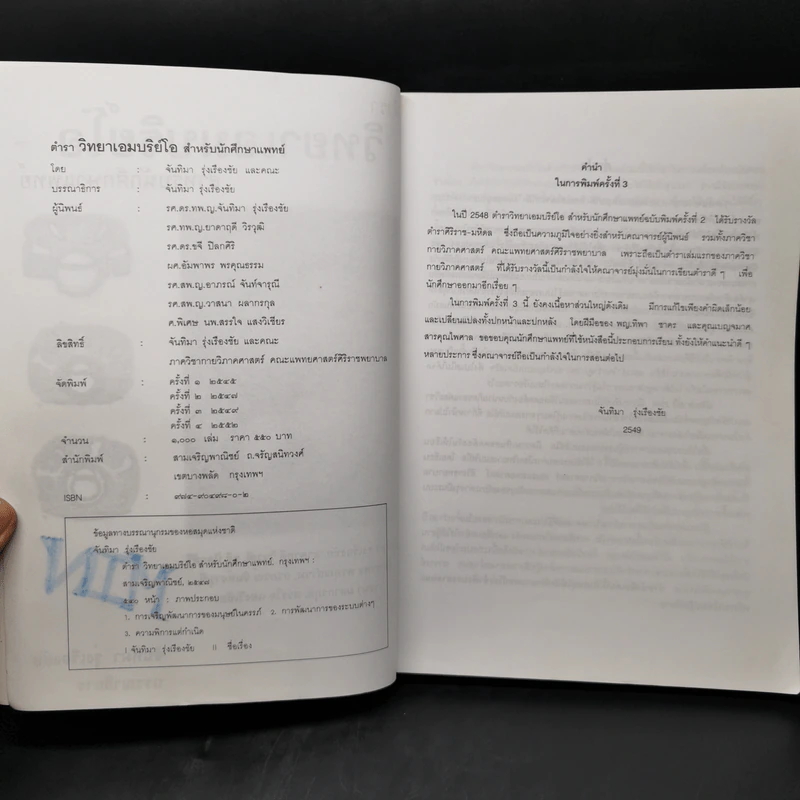 ตำรา วิทยาเอมบริย์โอ สำหรับนักศึกษาแพทย์
โดย : จันทิมา รุ่งเรืองชัย และคณะ
บรรณาธิการ : จันทิมา รุ่งเรืองชัย
ผู้นิพนธ์ : รศ.ดร.ทพ.ญ.จันทิมา รุ่งเรืองชัย
รศ.ทพ.ญ.ยาดาฤดี วิรวุฒิ
รศ.ดร.ขจี ปิลกศิริ
ผศ.อัมพาพร พรคุณธรรม
รศ.สพ.ญ.อาภรณ์ จันท์จารุณี
รศ.สพ.ญ.วาสนา ผลากรกุล
ศ.พิเศษ นพ.สรรใจ แสงวิเชียร
ลิขสิทธิ์ : จันทิมา รุ่งเรืองชัย และคณะ
ภาควิชากายวิภาคศาสตร์ คณะแพทยศาสตร์ศิริราชพยาบาล
จัดพิมพ์ : ครั้งที่ ๑ ๒๕๔๕
ครั้งที่ ๒ ๒๕๔๗
ครั้งที่ ๓ ๒๕๔๙
ครั้งที่ ๔ ๒๕๕๒
จำนวน : ๑,๐๐๐ เล่ม ราคา ๕๕๐ บาท
สำนักพิมพ์ : สามเจริญพาณิชย์ ถ.จรัญสนิทวงศ์
เขตบางพลัด กรุงเทพฯ
ISBN : ๙๗๔-๙๐๔๙๘-๐-๒
ข้อมูลทางบรรณานุกรมของหอสมุดแห่งชาติ
จันทิมา รุ่งเรืองชัย
ตำรา วิทยาเอมบริย์โอ สำหรับนักศึกษาแพทย์. กรุงเทพฯ :
สามเจริญพาณิชย์, ๒๕๔๗
๕๔๐ หน้า : ภาพประกอบ
1. การเจริญพัฒนาการของมนุษย์ในครรภ์ 2. การพัฒนาการของระบบต่างๆ
3. ความพิการแต่กำเนิด
I จันทิมา รุ่งเรืองชัย II ชื่อเรื่อง
คำนำ
ในการพิมพ์ครั้งที่ 3
ในปี 2548 ตำราวิทยาเอมบริย์โอ สำหรับนักศึกษาแพทย์ฉบับพิมพ์ครั้งที่ 2 ได้รับรางวัล
ตำราศิริราช-มหิดล ซึ่งถือเป็นความภูมิใจอย่างยิ่งสำหรับคณาจารย์ผู้นิพนธ์ รวมทั้งภาควิชา
กายวิภาคศาสตร์ คณะแพทยศาสตร์ศิริราชพยาบาล เพราะถือเป็นตำราเล่มแรกของภาควิชา
กายวิภาคศาสตร์ ที่ได้รับรางวัลนี้เป็นกำลังใจให้คณาจารย์มุ่งมั่นในการเขียนตำราดี ๆ เพื่อ
นักศึกษาออกมาอีกเรื่อย ๆ
ในการพิมพ์ครั้งที่ 3 นี้ ยังคงเนื้อหาส่วนใหญ่ดังเดิม มีการแก้ไขเพียงคำผิดเล็กน้อย
และเปลี่ยนแปลงทั้งปกหน้าและปกหลัง โดยฝีมือของ พญ.ทิพา ชาคร และคุณเบญจมาศ
สารคุณไพศาล ขอขอบคุณนักศึกษาแพทย์ที่ใช้หนังสือนี้ประกอบการเรียน ทั้งยังให้คำแนะนำดี ๆ
หลายประการ ซึ่งคณาจารย์ถือเป็นกำลังใจในการสอนต่อไป
จันทิมา รุ่งเรืองชัย
2549